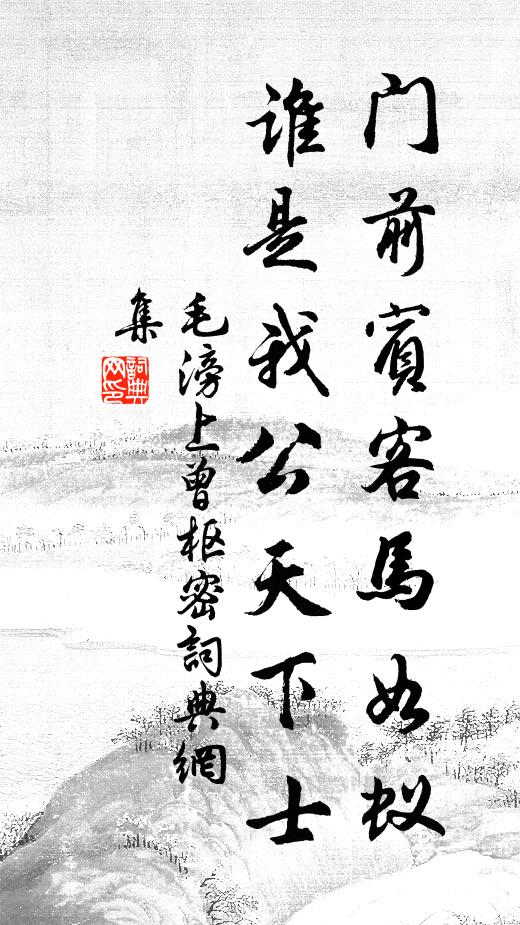 门前賓客馬如蚁
誰是我公天下士
毛滂上曾枢密詞典網
集
詞典网印